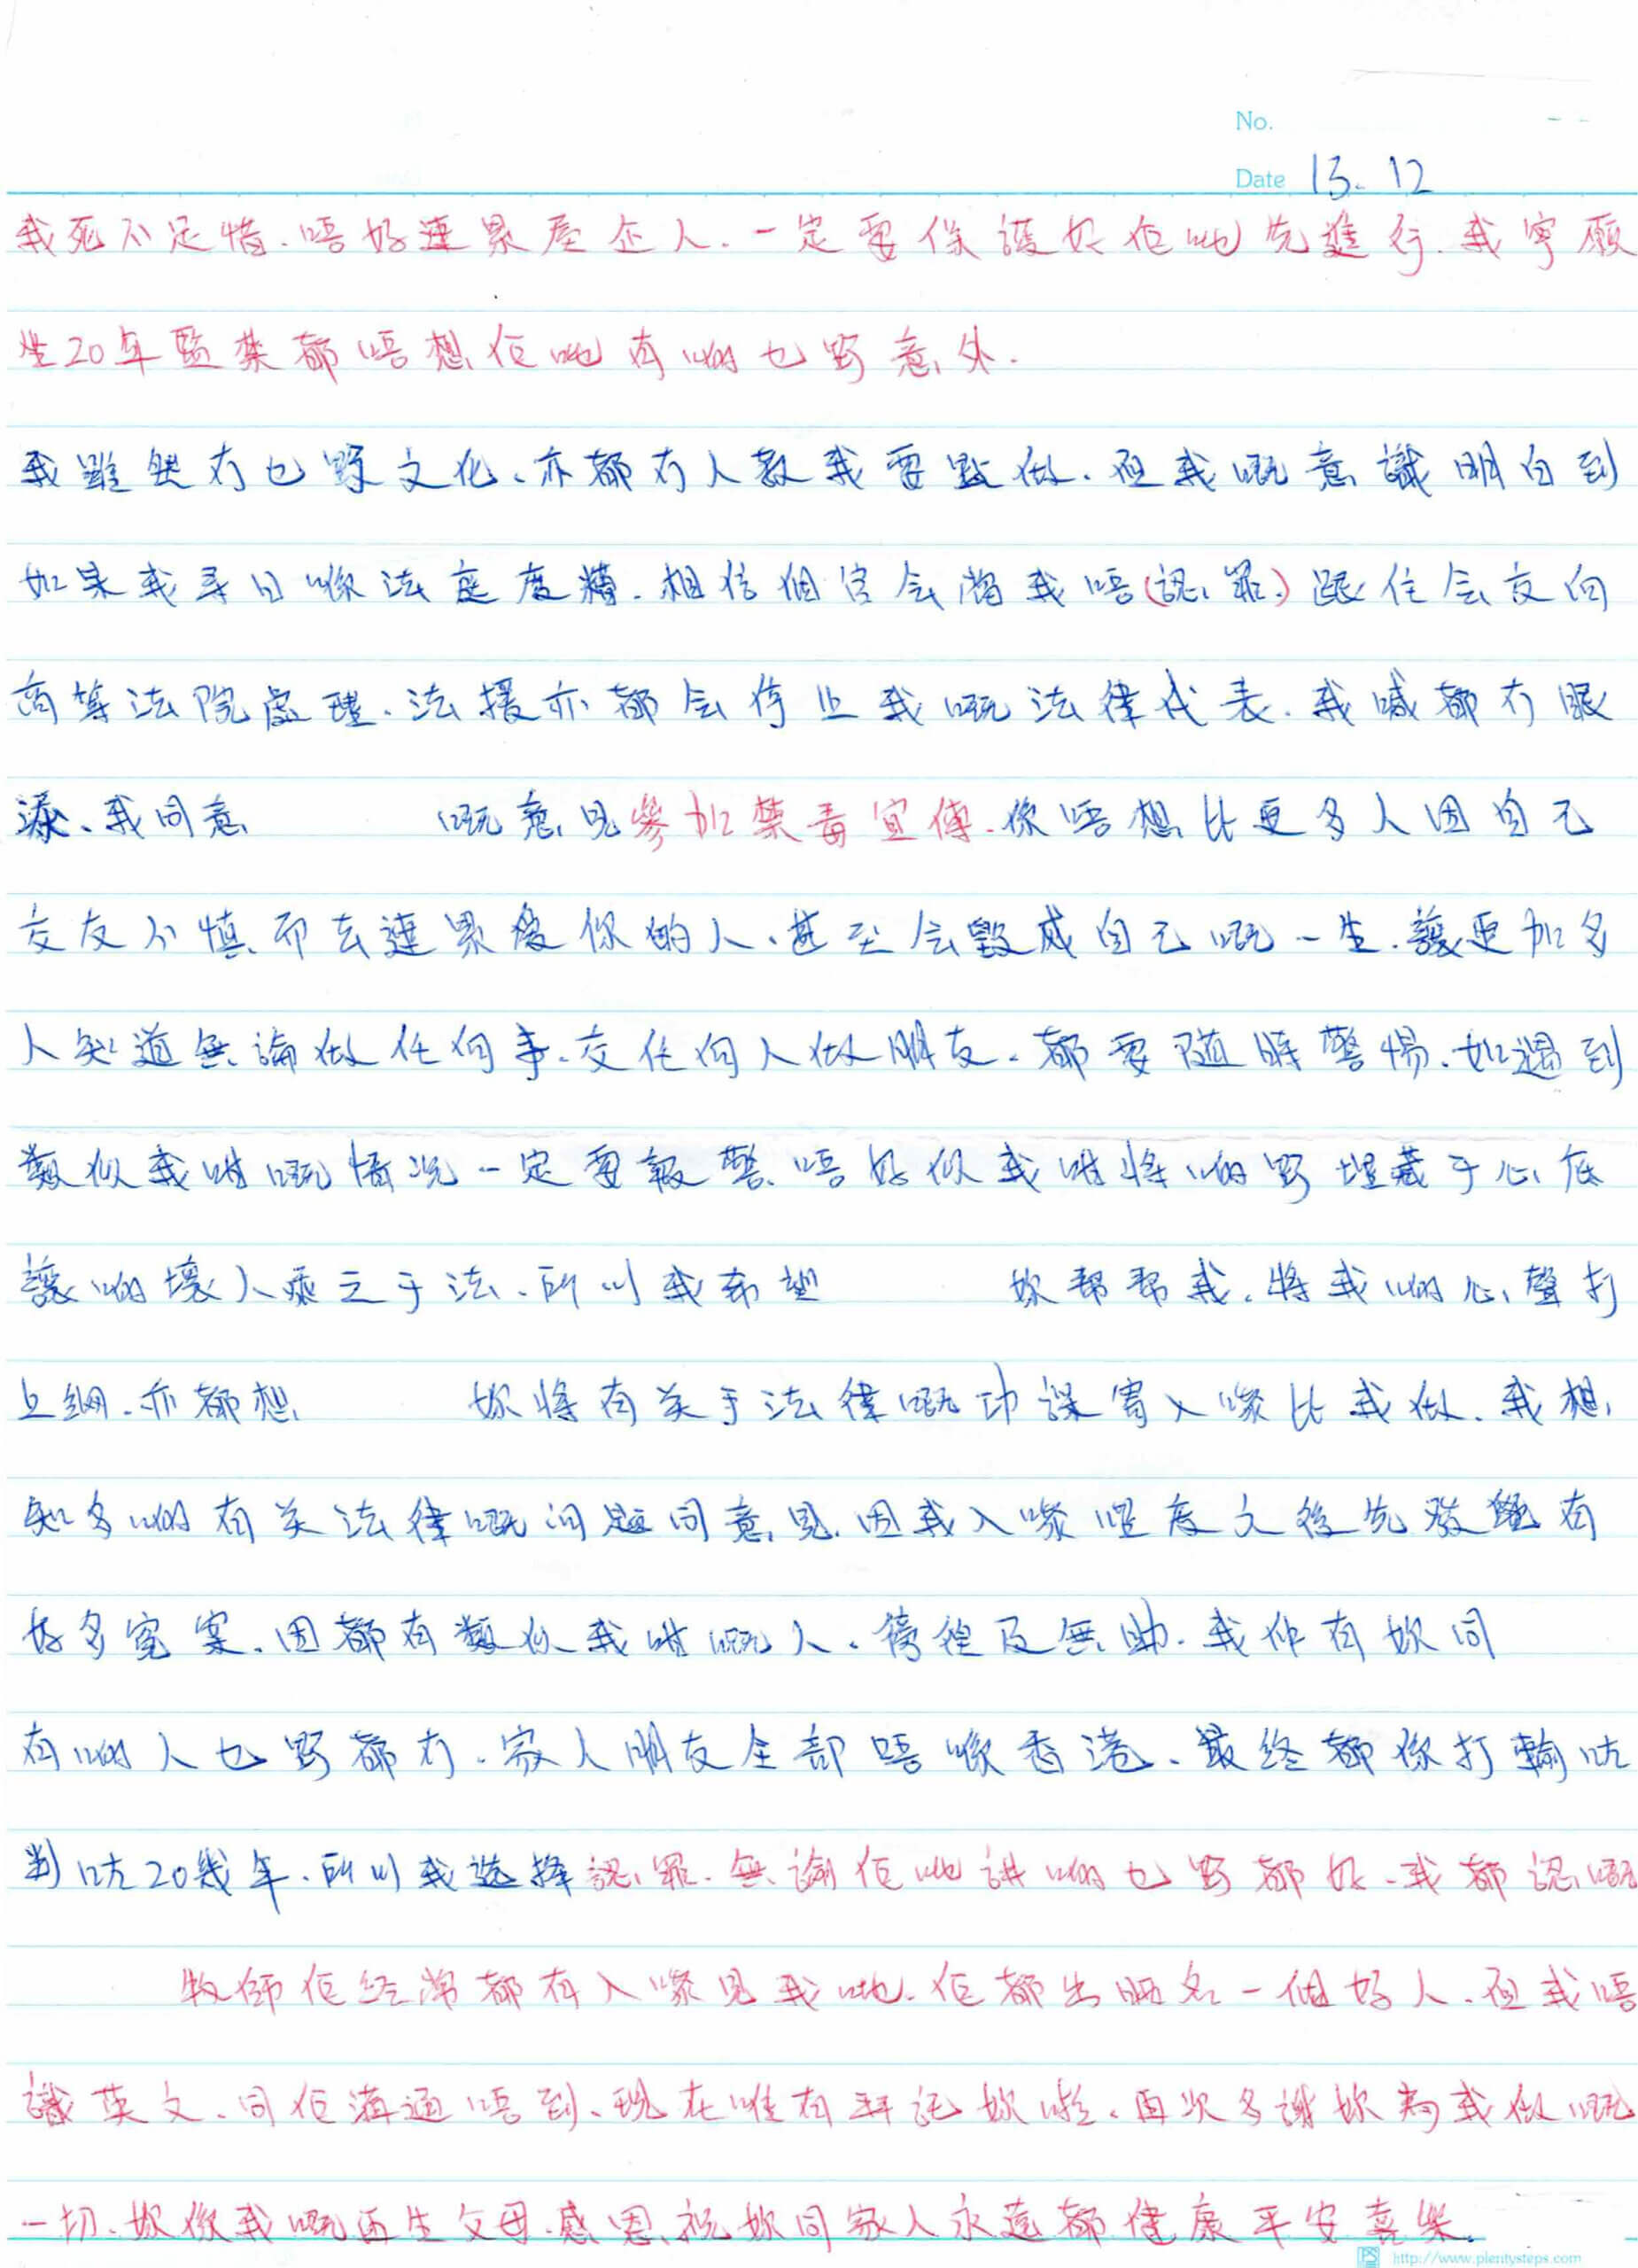 No.
Date 13. 12
我死不足惜．唔好連累屋企人．一定要保護好佢哋先進行．我寧願
坐20年監禁都唔想佢哋有啲乜野意外．
我雖然冇乜野文化、亦都冇人教我要點做．但我嘅意識明白到
如果我尋日喺法庭度嘈．相信個官会當我唔(認罪)跟住会交向
高等法院處理．法援亦都会停止我嘅法律代表．我喊都冇眼
淚、我同意 嘅意見參加禁毒宣傳．你唔想比更多人因自己
交友不慎、而去連累愛你的人、甚至会毀咸自己嘅一生．讓更加多
人知道無論做任何事、交任何人做朋友．都要隨時警惕．如遇到
類似我咁嘅情況一定要報警、唔好似我咁將啲野埋藏于心底
讓啲壞人乘之于法、所以我希望 妳帮帮我．將我啲心聲打
上網．亦都想 妳將有关于法律嘅功課寄入嚟比我做．我想
知多啲有关法律嘅问題同意見．因我入嚟呢度之後先發現有
好多冤案．因都有類似我咁嘅人、徬徨及無助．我仲有妳同
有啲人乜野都冇．家人朋友全部唔喺香港、最终都係打輸咗
判咗20幾年．所以我选擇認罪．無論佢哋講啲乜野都好．我都認嘅
牧師佢经常都有入嚟見我哋．佢都出晒名一個好人．但我唔
識英文、同佢溝通唔到、現在唯有拜託妳啦．再次多謝妳為我做嘅
一切．妳係我嘅再生父母．感恩．祝妳同家人永遠都健康平安喜樂．
http://www.plentysteps.com